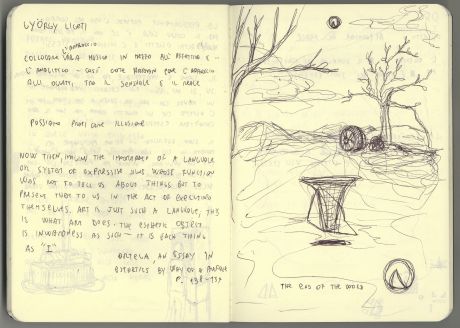 GYÖRGY LIGETI
L'APPROCCIO
COLLOCARE LA MUSICA: IN MEZZO ALL'
L'ANALITICO - COSÌ COME HARMAN PER L'APPROCCIO
TRA IL SENSUALE E IL REALE
POSSIAMO COME ILLUSIONI
NOW THEN, IMAGINE THE IMPORTANCE OF A LANGUAGE
OR SYSTEM OF EXPRESSIVE SIGNS WHOSE FUNCTION
WAS NOT TO TELL US ABOUT THINGS BUT TO
PRESENT THEM TO US IN THE ACT OF EXECUTING
THEMSELVES. ART IS JUST SUCH A LANGUAGE, THIS
IS WHAT ART DOES. THE ESTHETIC OBJECT
IS INWARDNESS AS SUCH - IT IS EACH THING
AS "I"
ORTEGA AN ESSAY IN
ESTHETICS BY WAY OF A PREFACE
P. 138-139
THE END OF THE WORLD